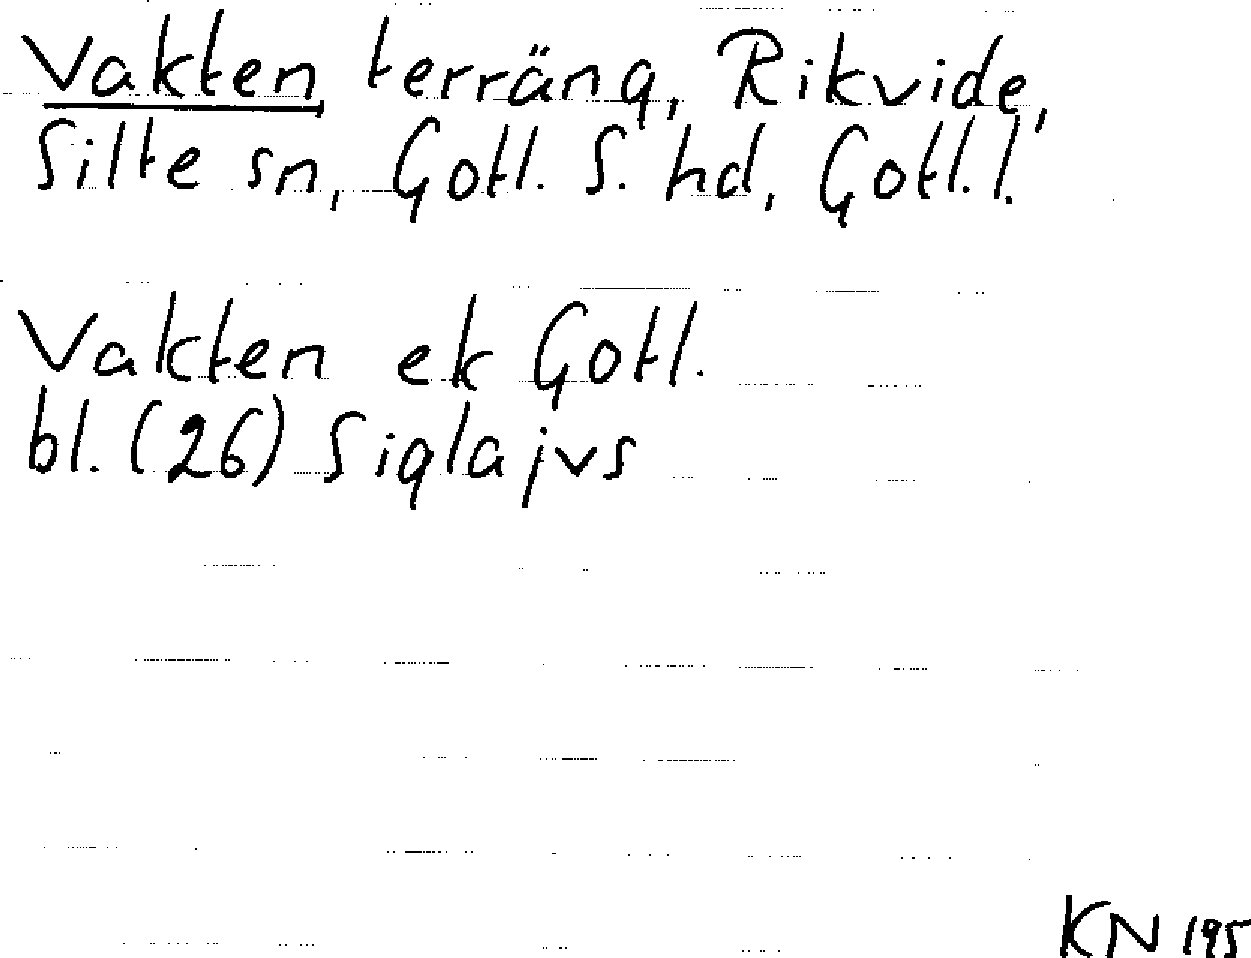 Vakten terräng, Rikvide,
Silte sn, Gotl. S. hd, Gotl. l.
Vakten ek Gotl.
bl. (26) Siglajvs
KN 195